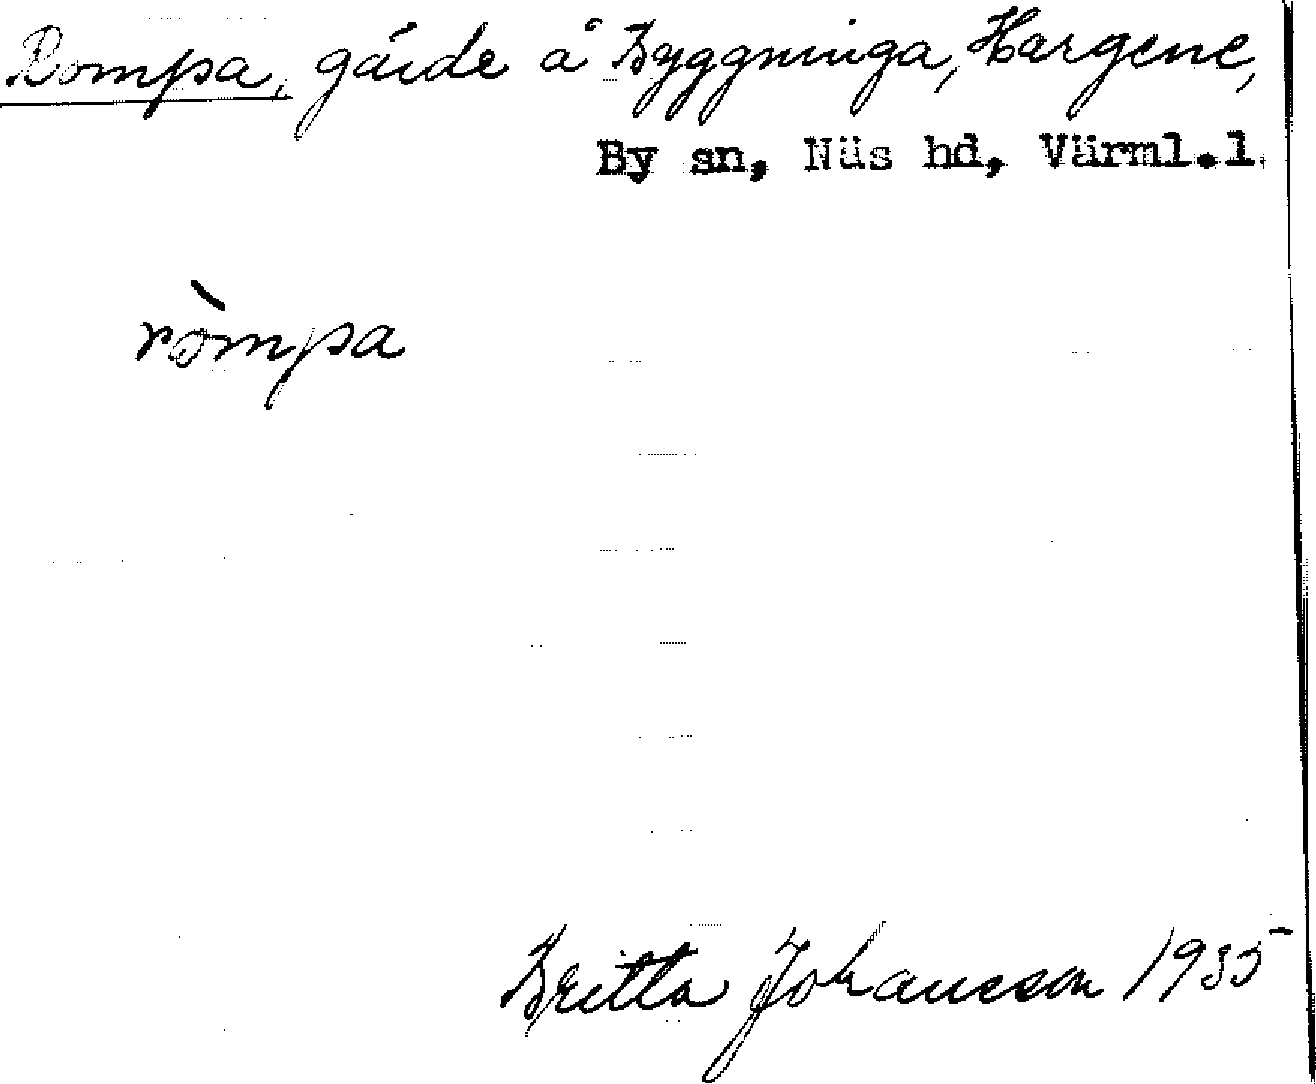 Rompa, gärde å Byggninga, Hargene,
By sn, Näs hd, Värml.l.
ròmpa
Britta Johansson 1935